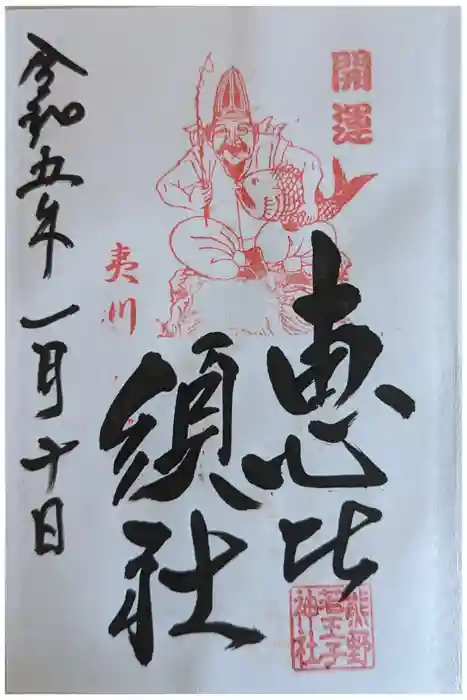 開運
恵比
須社
夷川
令和五年一月十日
熊野
若王子
神社